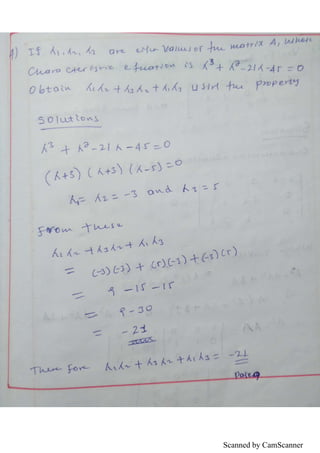 4) If λ1, λ2, λ3 are eigen values of the matrix A, whose
Characteristic equation is λ³ + λ² - 21λ - 45 = 0
Obtain λ1λ2 + λ3λ2 + λ1λ3 using the property
Solutions
λ³ + λ² - 21λ - 45 = 0
(λ+3) (λ+3) (λ-5) = 0
λ1 = λ2 = -3 and λ3 = 5
From these
λ1λ2 + λ3λ2 + λ1λ3
= (-3)(-3) + (5)(-3) + (-3)(5)
= 9 - 15 - 15
= 9 - 30
= -21
There fore λ1λ2 + λ3λ2 + λ1λ3 = -21
Scanned by CamScanner